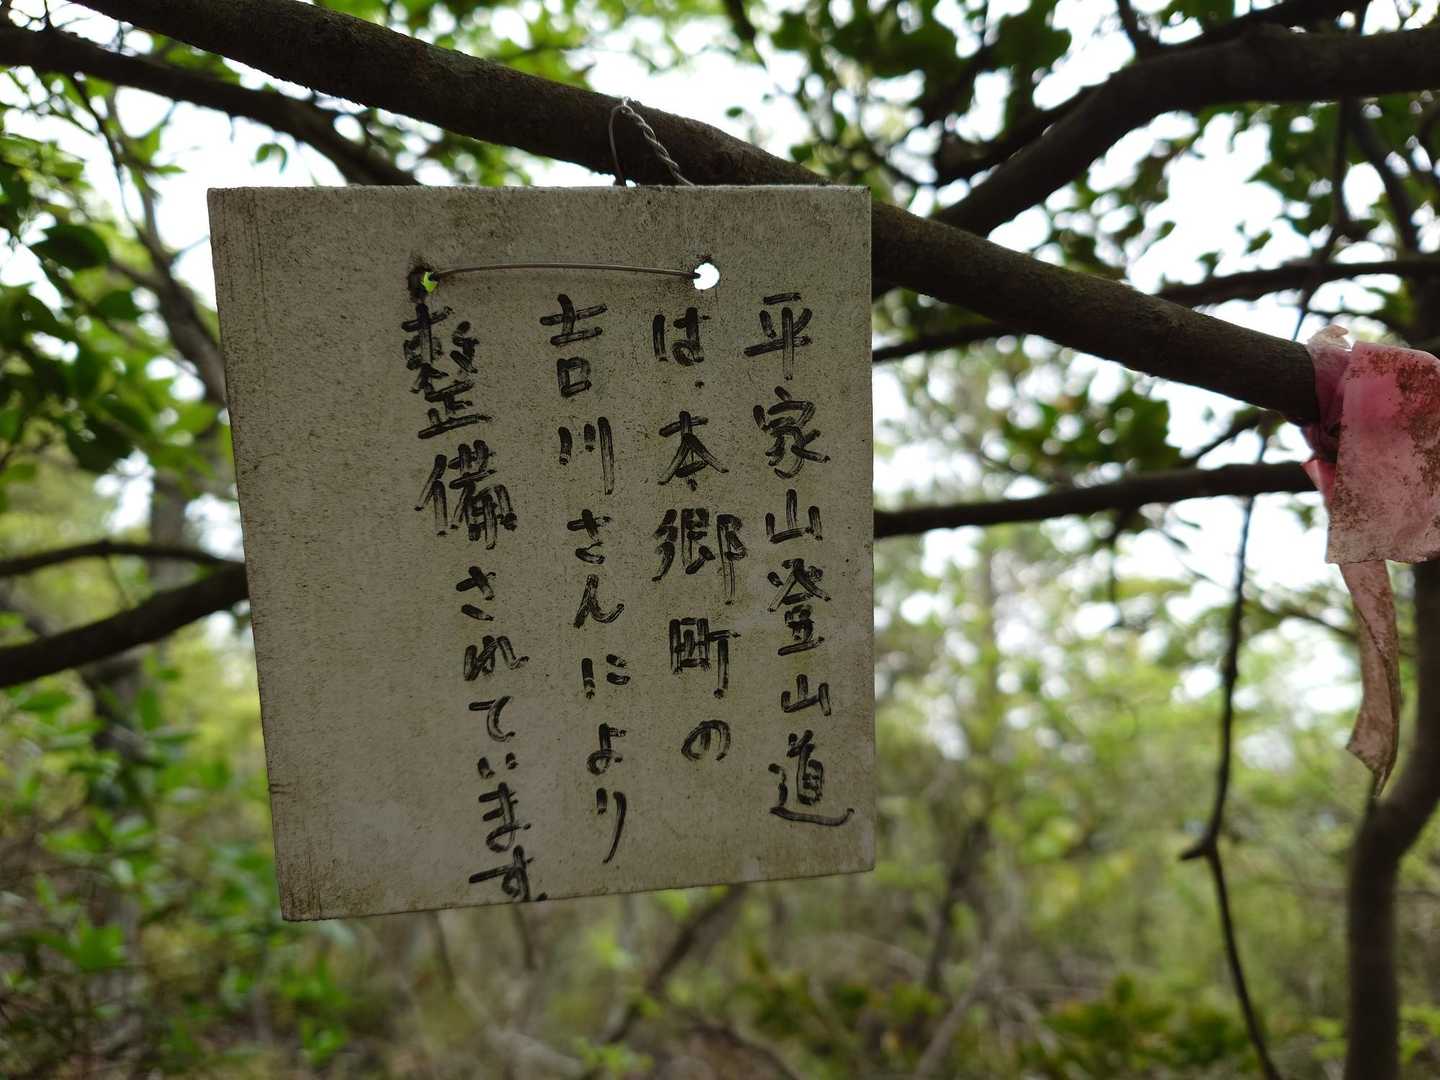 平家山登山道
は本郷町の
吉川さんにより
整備されています